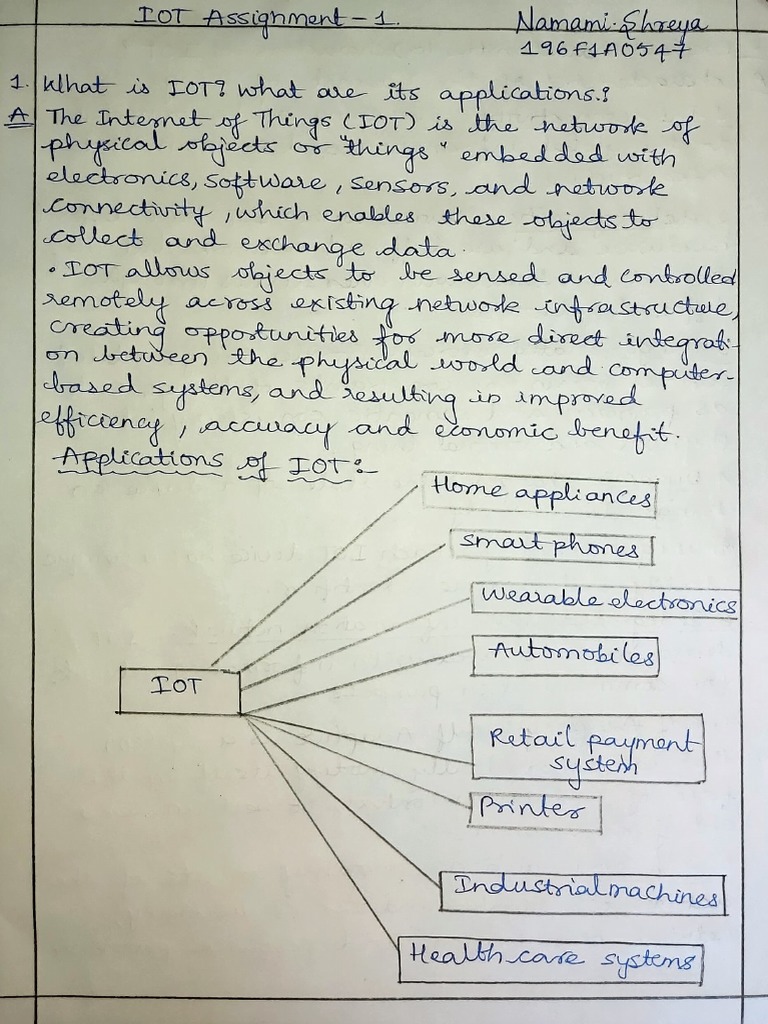 IOT Assignment - 1.
Namami Shreya
196F1A0547
1. What is IOT? what are its applications.?
A The Internet of Things (IOT) is the network of
physical objects or "things" embedded with
electronics, software, sensors, and network
connectivity, which enables these objects to
collect and exchange data.
• IOT allows objects to be sensed and controlled
remotely across existing network infrastructure,
creating opportunities for more direct integrati-
on between the physical world and computer-
based systems, and resulting in improved
efficiency, accuracy and economic benefit.
Applications of IOT:-
Home appliances
smart phones
Wearable electronics
Automobiles
IOT
Retail payment
system
Printer
Industrial machines
Health care systems